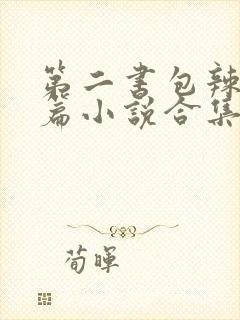 第二书包辣
篇小说合集
荀晖